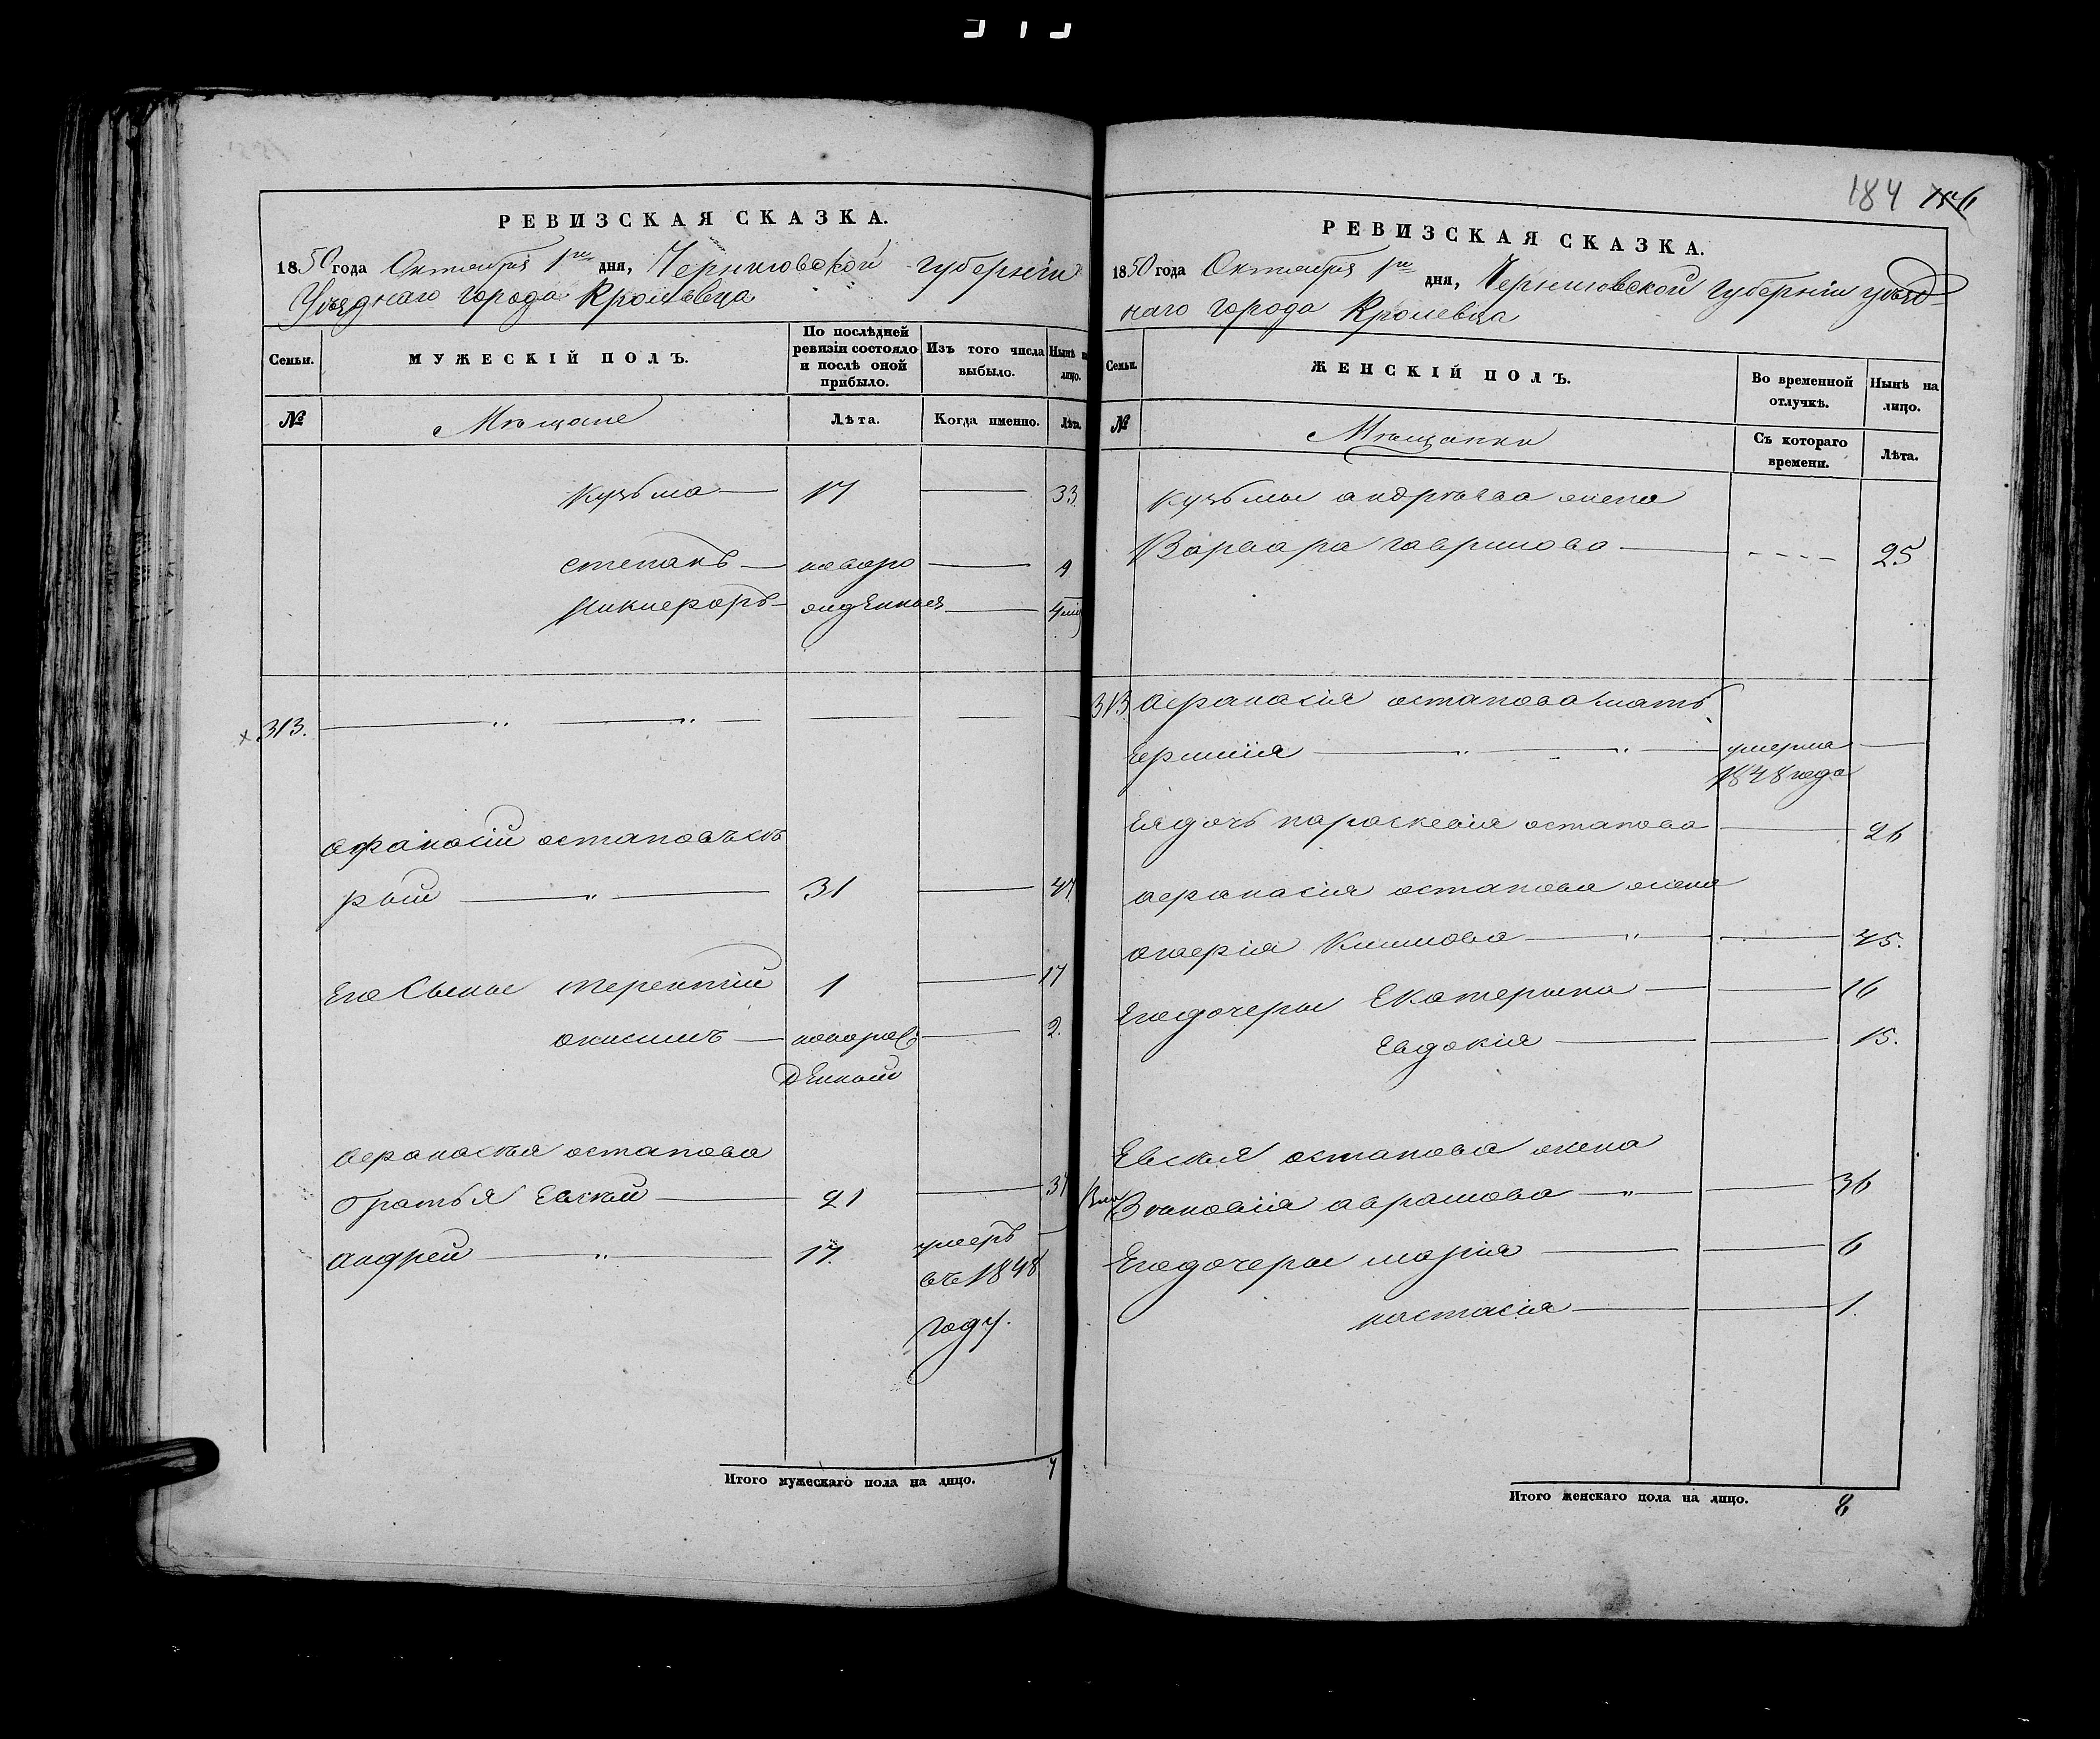 РЕВИЗСКАЯ СКАЗКА.
1850 года Октября 1го дня, Черниговской губерніи
Уѣзднаго города Кролевца
Семьи.
МУЖЕСКІЙ ПОЛЪ.
По послѣдней ревизіи состояло и послѣ оной прибыло.
Изъ того числа выбыло.
Нынѣ на лицо.
№
Мѣщане
Лѣта.
Когда именно.
Лѣта.
Кузьма — 17 — 33
Степанъ — новоро —
Никифоръ — жденные — 4 мѣ
313.
Афанасій остаповъ ста
рый — " — 31 — 47
Его Сыновья терентій 1 — 17
онисимъ — новорож — 2.
Денный
Афанасья остапова
братья Евсей — 21 — 37
андрей — " — 17. умеръ —
въ 1848
году.
Итого мужескаго пола на лицо. 7
184
РЕВИЗСКАЯ СКАЗКА.
1850 года Октября 1го дня, Черниговской губерніи уѣзд
наго города Кролевца
Семьи.
ЖЕНСКІЙ ПОЛЪ.
Во временной отлучкѣ.
Нынѣ на лицо.
№
Мѣщанки
Съ котораго времени.
Лѣта.
Кузьмы андреева жена
Варвара гаврилова — 25
313 Афанасія остапова мать
— " — " — умерла —
1848 года
Ея дочь параскевія остапова — 26
Афанасія остапова жена
Климова — " — 45.
Его дочери Екатерина — 16
Евдокія — 15.
Евсея остапова жена
Зѣновія аврамова — " — 36
Его дочери марія — 6
настасія — 1.
Итого женскаго пола на лицо. 8